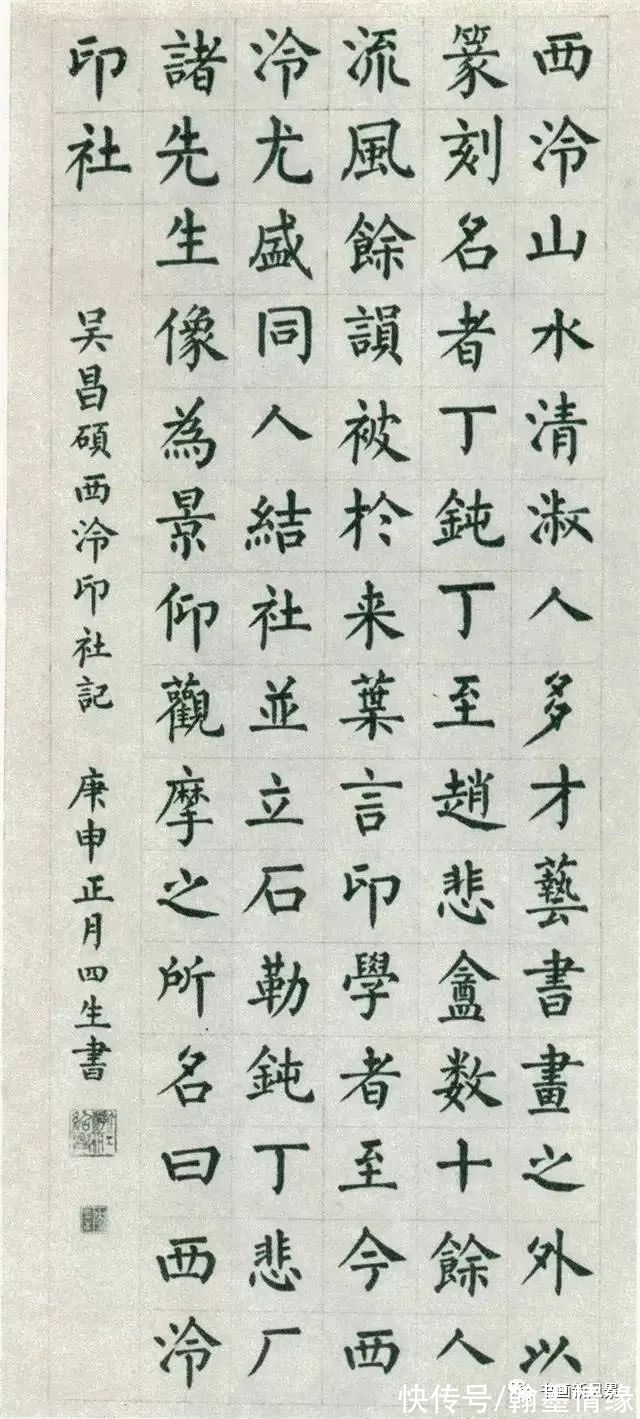 西泠山水清淑人多才藝書畫之外以
篆刻名者丁鈍丁至趙悲盦數十餘人
流風餘韻被於来葉言印學者至今西
泠尤盛同人結社並立石勒鈍丁悲厂
諸先生像為景仰觀摩之所名曰西泠
印社
吴昌碩西泠印社記 庚申正月四生書
快传号/翰墨情缘